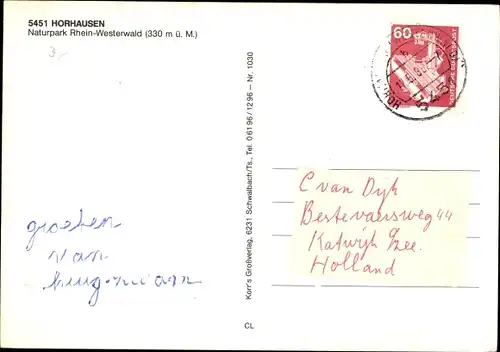 5451 HORHAUSEN
Naturpark Rhein-Westerwald (330 m ü. M.)
3,-
groeten
van
Korr's Großverlag, 6231 Schwalbach/Ts., Tel. 0 61 96 / 12 96 – Nr. 1030
CL
60
DEUTSCHE BUNDESPOST
C van Dijk
Bestevaersweg 44
Katwijk a/zee.
Holland